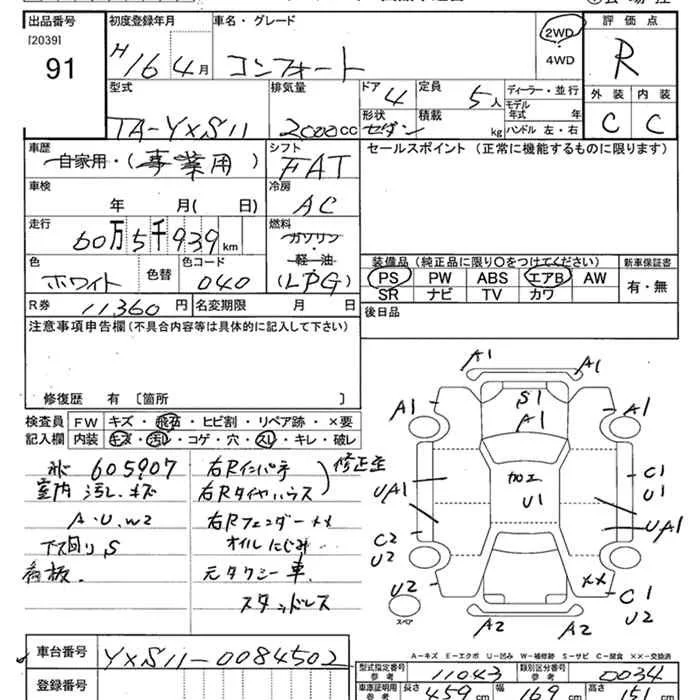 出品番号 初度登録年月 車名・グレード 2WD 評価点
[2039] 91 H16 4月 コンフォート 4WD R
型式 排気量 ドア 定員 ディーラー・並行 外装 内装
4 5人 モデル年式 年
TA-YXS11 2000cc 形状 セダン 積載 kg ハンドル 左・右 C C
車歴 シフト セールスポイント (正常に機能するものに限ります)
自家用・(事業用) FAT
車検 冷房
年 月(日) AC
走行 燃料
60万5千939km ガソリン・軽油
色 色替 色コード (LPG) 装備品 (純正品に限り○をつけてください) 新車保証書
ホワイト 040 PS PW ABS エアB AW 有・無
SR ナビ TV カワ
R券 11,360円 名変期限 月 日 後日品
注意事項申告欄(不具合内容等は具体的に記入して下さい)
修復歴 有 〔箇所 〕
検査員記入欄 FW キズ・飛石・ヒビ割・リペア跡・×要
内装 キズ・汚レ・コゲ・穴・スレ・キレ・破レ
605907 右Rインパネ 修正歪
室内 汚レ、キズ 右Rタイヤハウス
A・U・W2 右Rフェンダー
下回り、S オイルにじみ
看板、 元タクシー車、
スタッドレス
A1 A1
S1
A1 A1 A1
加工
U1
UA1
C1
U1
UA1
C2
U2
U2 ×× C1
U2
スペア A2 A2
A-キズ E-エクボ U-凹み W-補修跡 S-サビ C-腐食 ××-交換済
車台番号 YXS11-0084502
型式指定番号 参考 11043 類別区分番号 参考 0034
登録番号
車庫証明用 参考 長さ 459cm 幅 169cm 高さ 151cm